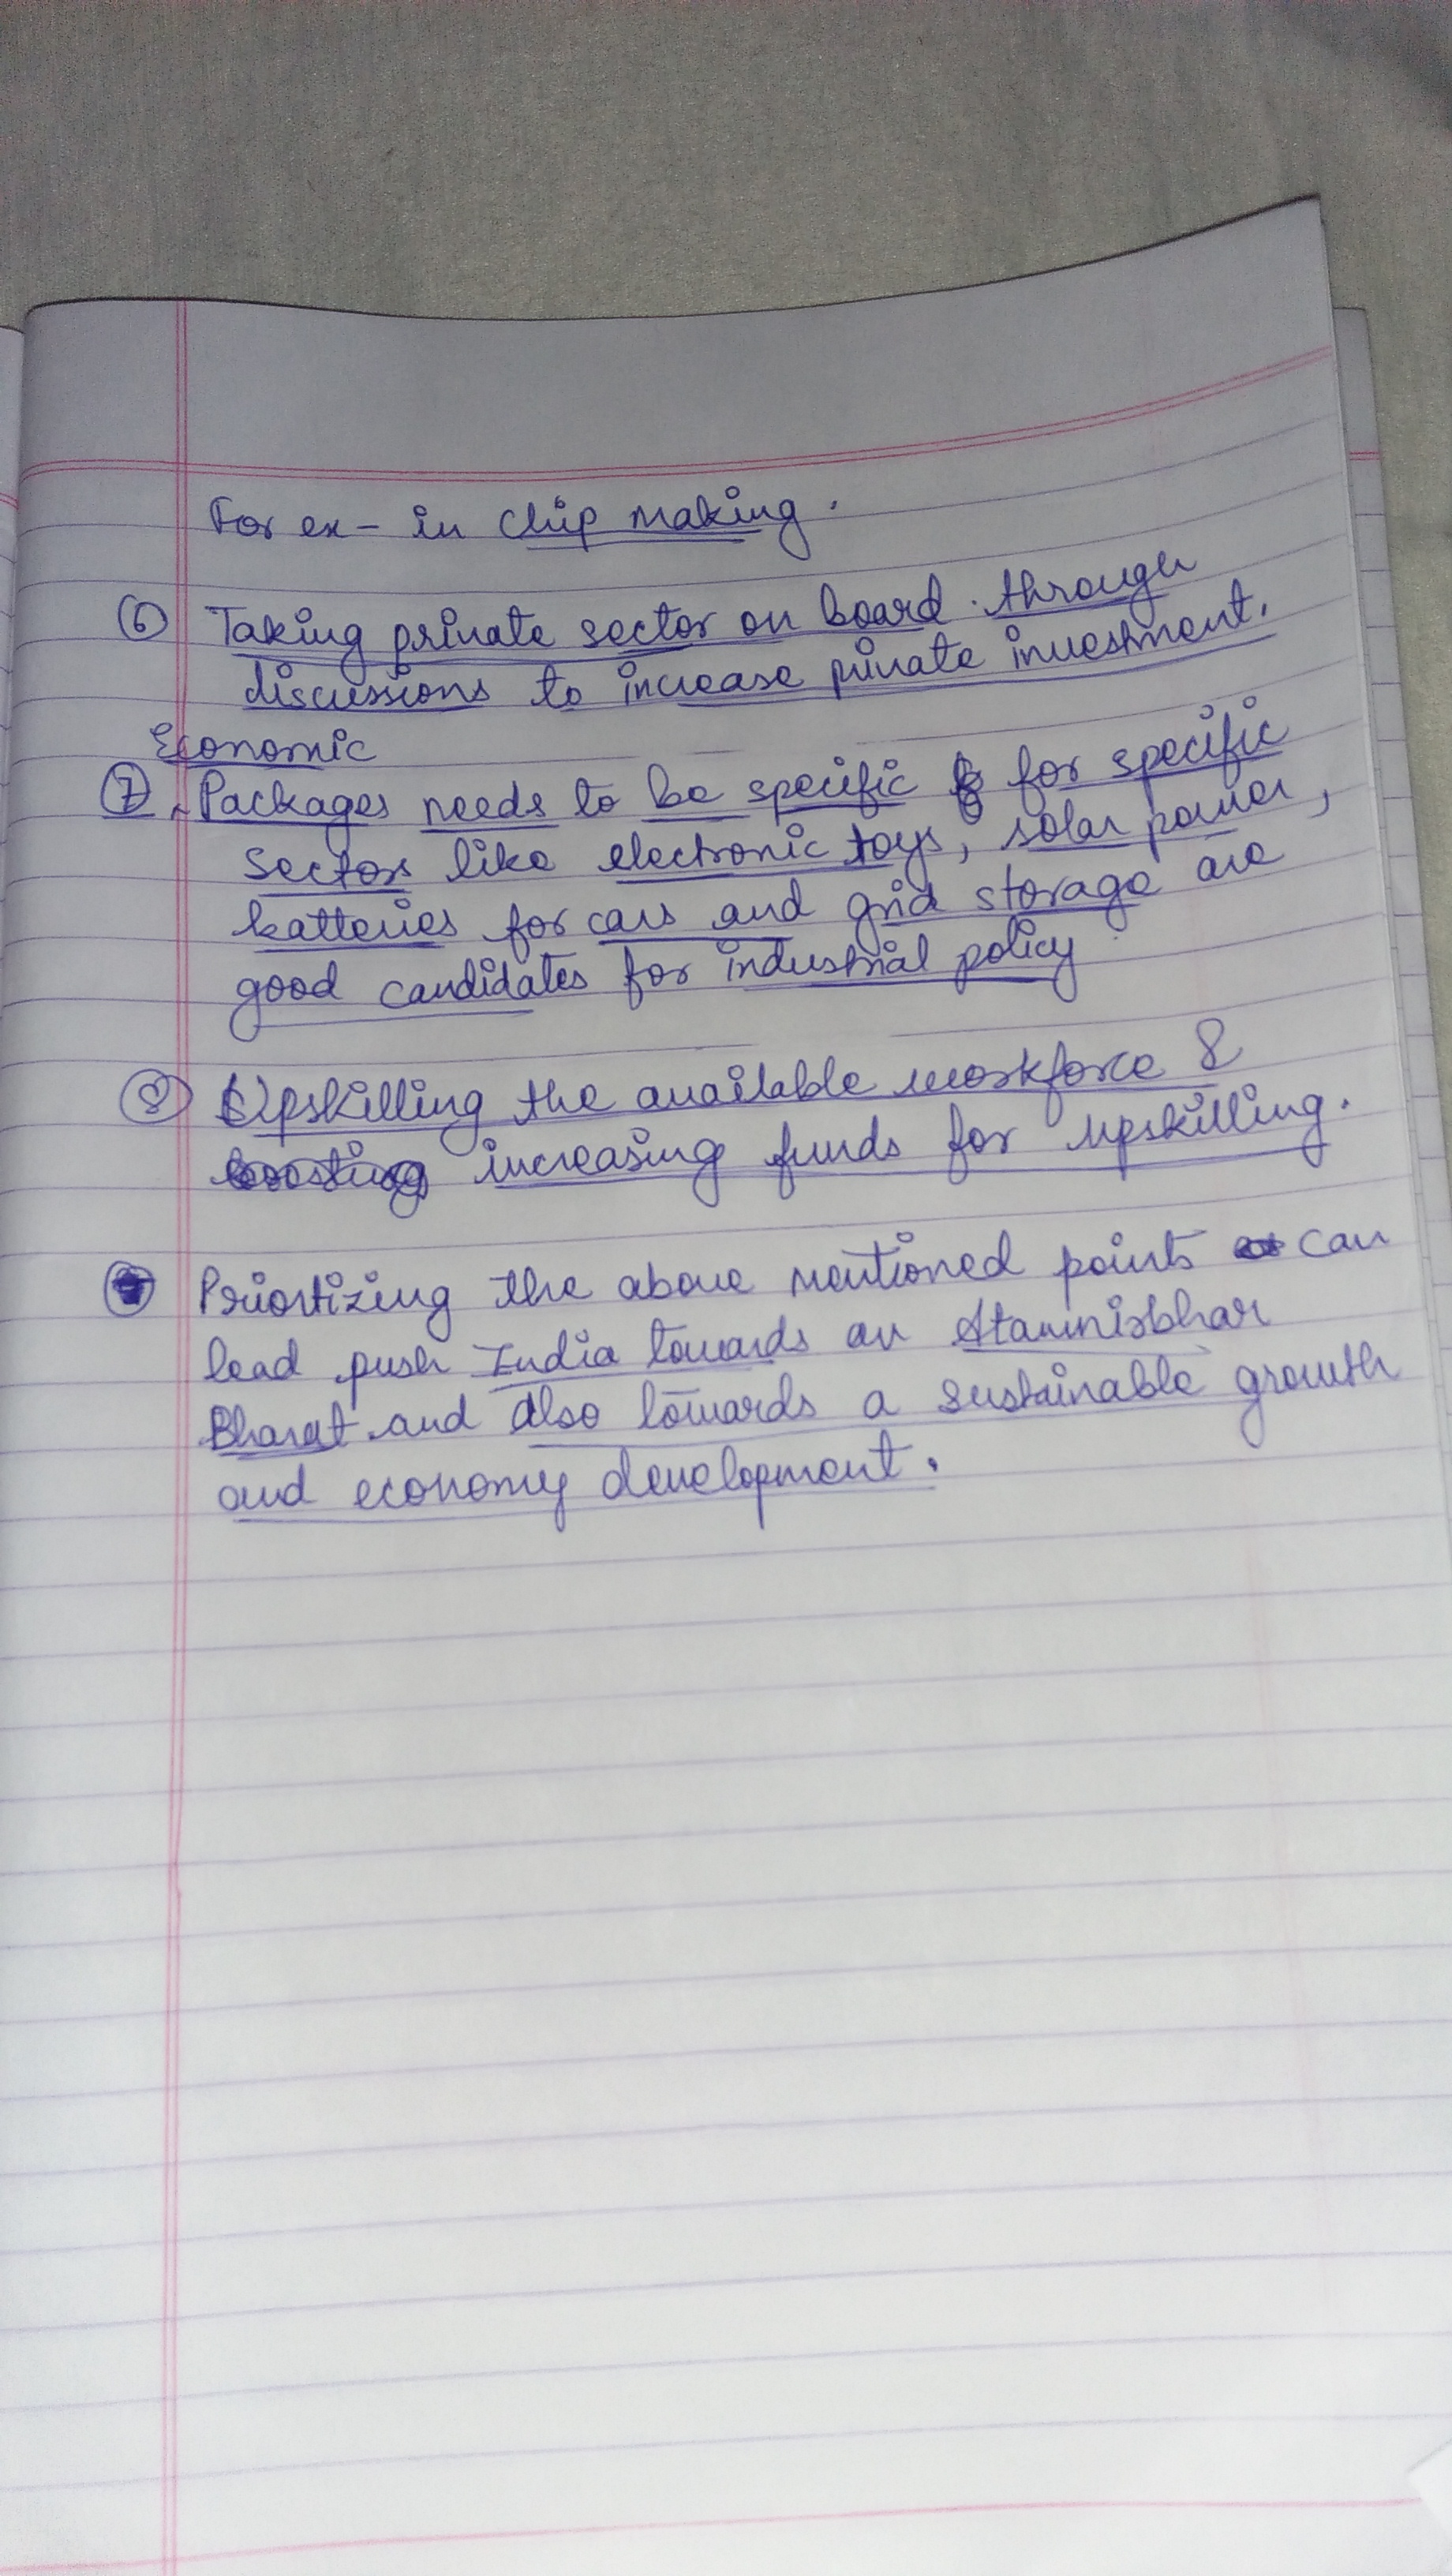 For ex - in Chip making.
6 Taking private sector on board. through
discussions to increase private investment.
Economic
7 Packages needs to be specific for specific
sectors like electronic toys, solar power,
batteries for cars and grid storage are
good candidates for industrial policy
8 Upskilling the available workforce &
boosting increasing funds for upskilling.
Priortizing the above mentioned points can
lead push India towards an Atamnirbhar
Bharat and also towards a sustainable growth
and economy development.